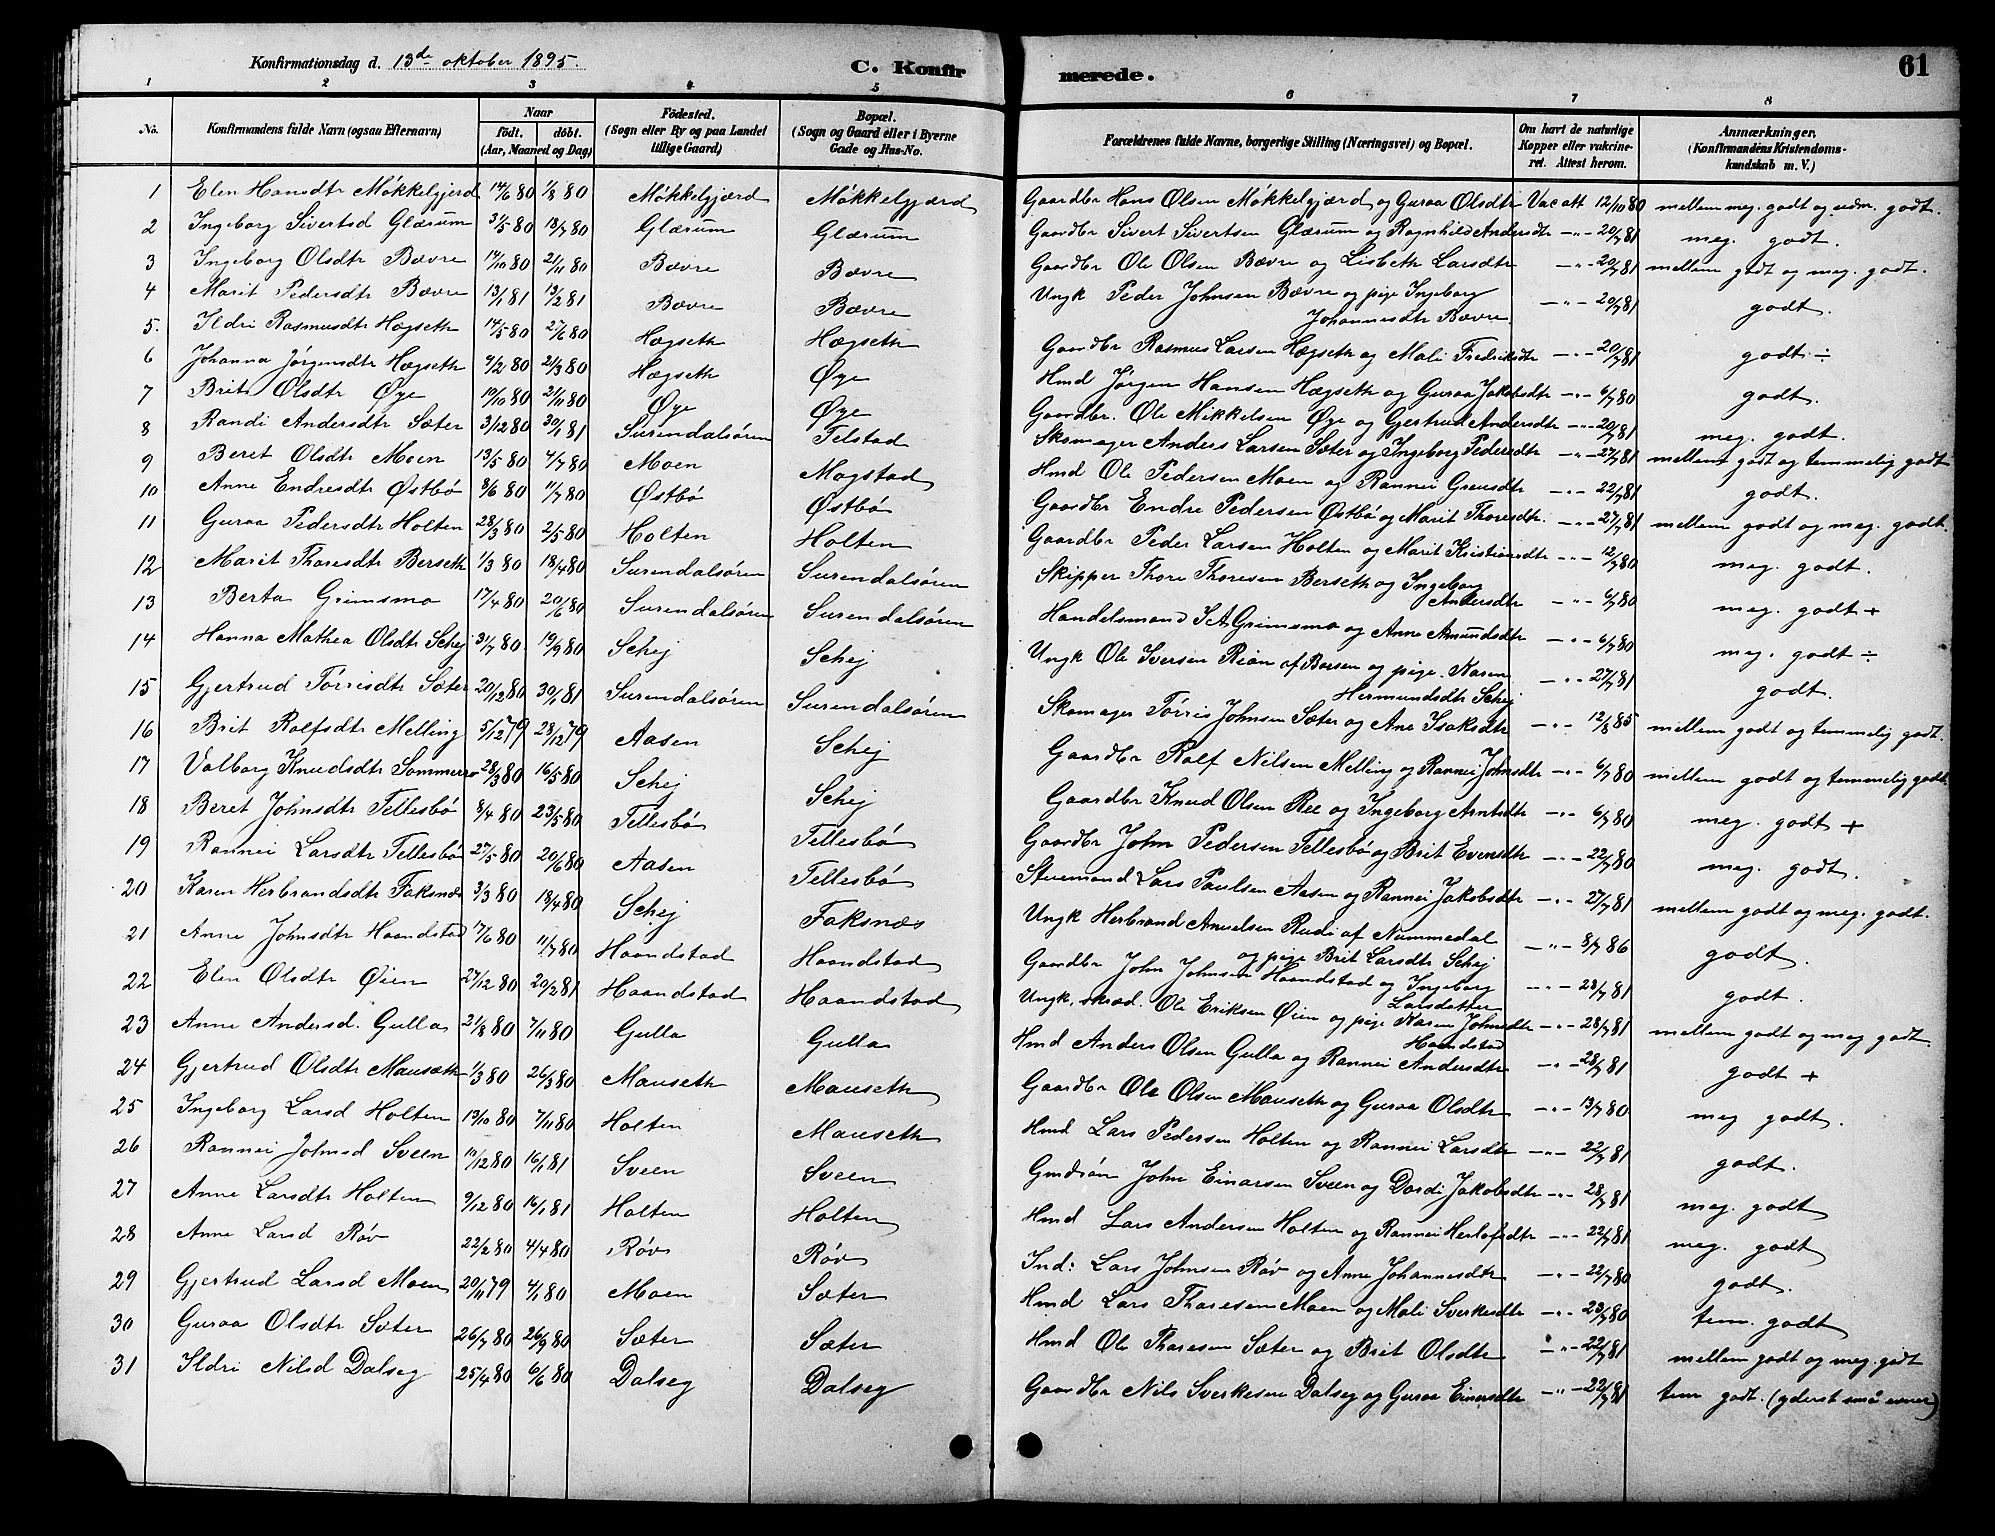 Konfirmationsdag d. 13de oktober 1895.
C. Konfir merede.
61
1 2 3 4 5 6 7 8
No.
Konfirmandens fulde Navn (ogsaa Efternavn)
Naar
födt. döbt.
(Aar, Maaned og Dag)
Födested.
(Sogn eller By og paa Landet
tillige Gaard)
Bopæl.
(Sogn og Gaard eller i Byerne
Gade og Hus-No.
Forældrenes fulde Navne, borgerlige Stilling (Næringsvei) og Bopæl.
Om havt de naturlige
Kopper eller vakcine-
ret. Attest herom.
Anmærkninger.
(Konfirmandens Kristendoms-
kundskab m. V.)
1 Elen Hansdtr Møkkelgjerd 14/6 80 1/8 80 Møkkelgjærd Møkkelgjærd Gaardbr Hans Olsen Møkkelgjærd og Guraa Olsdtr Vac att 12/10 80 mellem meg. godt og udm. godt.
2 Ingeborg Sivertsd Glærum 31/5 80 18/7 80 Glærum Glærum Gaardbr Sivert Sivertsen Glærum og Ragnhild Andersdtr -"- 20/7 81 meg. godt.
3 Ingeborg Olsdtr Bævre 14/10 80 21/11 80 Bævre Bævre Gaardbr Ole Olsen Bævre og Lisbeth Larsdtr -"- 20/7 81 mellem godt og meg. godt.
4 Marit Pedersdtr Bævre 13/1 81 13/2 81 Bævre Bævre Ungk Peder Johnsen Bævre og pige Ingeborg
Johannesdtr Bævre -"- 20/7 81 godt.
5. Ildri Rasmusdtr Hægseth 14/5 80 27/6 80 Hægseth Hægseth Gaardbr Rasmus Larsen Hægseth og Mali Fredriksdtr -"- 20/7 81 godt ÷
6 Johanna Jørgensdtr Hægseth 9/2 80 21/3 80 Hægseth Øye Hmd Jørgen Hansen Hægseth og Guraa Jakobsdtr -"- 6/7 80 godt.
7 Brit Olsdtr Øye 19/10 80 21/11 80 Øye Øye Gaardbr. Ole Mikkelsen Øye og Gjertrud Andersdtr -"- 20/7 81 meg. godt.
8 Randi Andersdtr Sæter 3/12 80 30/1 81 Surendalsøren Telstad Skomager Anders Larsen Sæter og Ingeborg Pedersdtr -"- 27/7 81 mellem godt og temmelig godt
9 Beret Olsdtr Moen 13/5 80 4/7 80 Moen Mogstad Hmd Ole Pedersen Moen og Rannei Greusdtr -"- 22/7 81 godt.
10 Anne Endresdtr Østbø 8/6 80 11/7 80 Østbø Østbø Gaardbr Endre Pedersen Østbø og Marit Thoresdtr. -"- 27/7 81 mellem godt og meg. godt.
11 Guraa Pedersdtr Holten 28/3 80 2/5 80 Holten Holten Gaardbr Peder Larsen Holten og Marit Kristiansdtr -"- 12/7 80 meg. godt.
12 Marit Thoresdtr Berseth 1/3 80 18/4 80 Surendalsøren Surendalsøren Skipper Thore Thoresen Berseth og Ingeborg
Andersdtr -"- 6/7 80 meg. godt +
13 Berta Grimsmo 17/4 80 20/6 80 Surendalsøren Surendalsøren Handelsmand S.A. Grimsmo og Anne Amundsdtr -"- 6/7 80 meg. godt ÷
14 Hanna Mathea Olsdtr Schej 31/7 80 19/9 80 Schej Schej Ungk Ole Iversen Rian af Børsen og pige Karen
Hermundsdtr Schej -"- 27/7 81 godt.
15 Gjertrud Tørrisdtr Sæter 20/12 80 30/1 81 Surendalsøren Surendalsøren Skomager Tørris Johnsen Sæter og Ane Isaksdtr -"- 12/8 85 mellem godt og temmelig godt.
16 Brit Rolfsdtr Melling 5/12 79 28/12 79 Aasen Schej Gaardbr Rolf Nilsen Melling og Rannei Johnsdtr -"- 6/7 80 mellem godt og temmelig godt.
17 Valborg Knudsdtr Sommerro 28/3 80 16/5 80 Schej Schej Gaardbr Knud Olsen Ree og Ingeborg Arntsdtr -"- 6/7 80 meg. godt +
18 Beret Johnsdtr Tellesbø 8/4 80 23/5 80 Tellesbø Tellesbø Gaardbr John Pedersen Tellesbø og Brit Evensdtr -"- 22/7 80 meg. godt.
19 Rannei Larsdtr Tellesbø 27/5 80 20/6 80 Aasen Tellesbø Stuemand Lars Paulsen Aasen og Rannei Jakobsdtr -"- 27/7 81 mellem godt og meg. godt.
20 Karen Herbrandsdtr Faksnæs 3/3 80 18/4 80 Schej Faksnæs Ungk Herbrand Amelsen Rudi af Nummedal
og pige Brit Larsdtr Schej -"- 8/7 86 godt.
21 Anne Johnsdtr Haandstad 17/6 80 11/7 80 Haandstad Haandstad Gaardbr John Johnsen Haandstad og Ingeborg
Larsdatter -"- 28/7 81 godt.
22 Elen Olsdtr Øien 27/12 80 20/2 81 Haandstad Haandstad Ungk, skræd. Ole Eriksen Øien og pige Karen Johnsdtr
Haandstad -"- 28/7 81 mellem godt og meg godt.
23 Anne Andersd. Gulla 21/8 80 7/11 80 Gulla Gulla Hmd Anders Olsen Gulla og Rannei Andersdtr -"- 28/7 81 godt +
24 Gjertrud Olsdtr Mauseth 1/3 80 26/3 80 Mauseth Mauseth Gaardbr Ole Olsen Mauseth og Guraa Olsdtr -"- 13/7 80 meg godt.
25 Ingeborg Larsd Holten 19/10 80 7/11 80 Holten Mauseth Hmd Lars Pedersen Holten og Rannei Larsdtr -"- 22/7 81 godt.
26 Rannei Johnsd Sveen 10/12 80 16/1 81 Sveen Sveen Gmdsøn John Einarsen Sveen og Dordi Jakobsdtr -"- 28/7 81 meg. godt
27 Anne Larsdtr Holten 9/12 80 16/1 81 Holten Holten Hmd Lars Andersen Holten og Rannei Herlofsdtr -"- 22/7 81 meg. godt
28 Anne Larsd Røv 22/2 80 4/4 80 Røv Røv Ind: Lars Johnsen Røv og Anne Johannesdtr -"- 22/7 80 godt.
29 Gjertrud Larsd Moen 20/11 79 4/1 80 Moen Sæter Hmd Lars Tharesen Moen og Mali Sverkesdtr -"- 23/7 80 tem. godt
30 Guraa Olsdtr Sæter 26/7 80 26/9 80 Sæter Sæter Hmd Ole Tharesen Sæter og Brit Olsdtr -"- 22/7 81 mellem godt og meg. godt
31 Ildri Nilsd Dalseg 25/4 80 6/6 80 Dalseg Dalseg Gaardbr Nils Sverkesen Dalseg og Guraa Einersdtr -"- 22/7 81 tem godt. (yderst små evner)